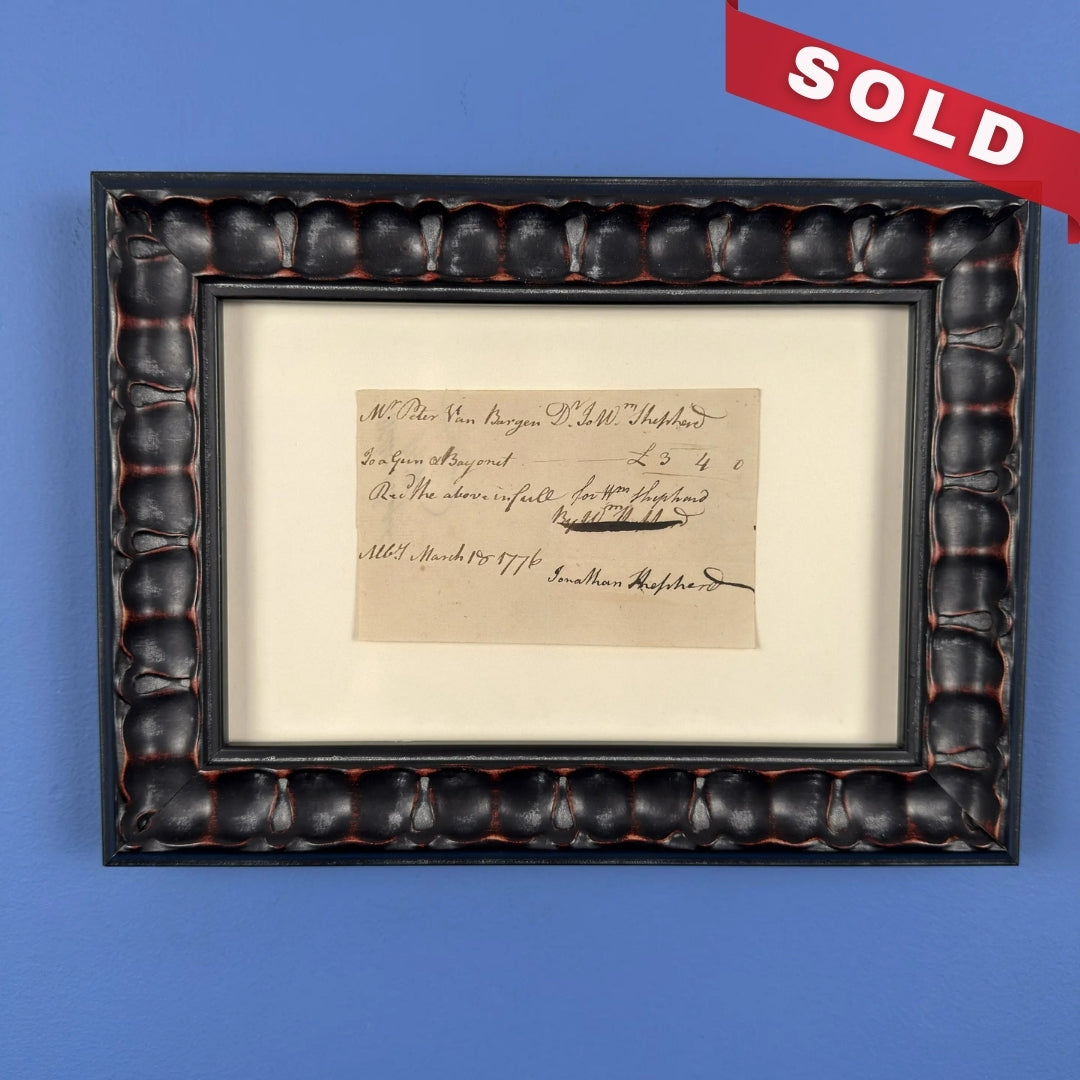 SOLD
Mr. Peter Van Bargen Dr. To Wm Shepherd
To a Gun & Bayonet £3 4 0
Recd the above in full for Wm Shephard
By Wm
Alby March 18 1776
Jonathan Shepherd